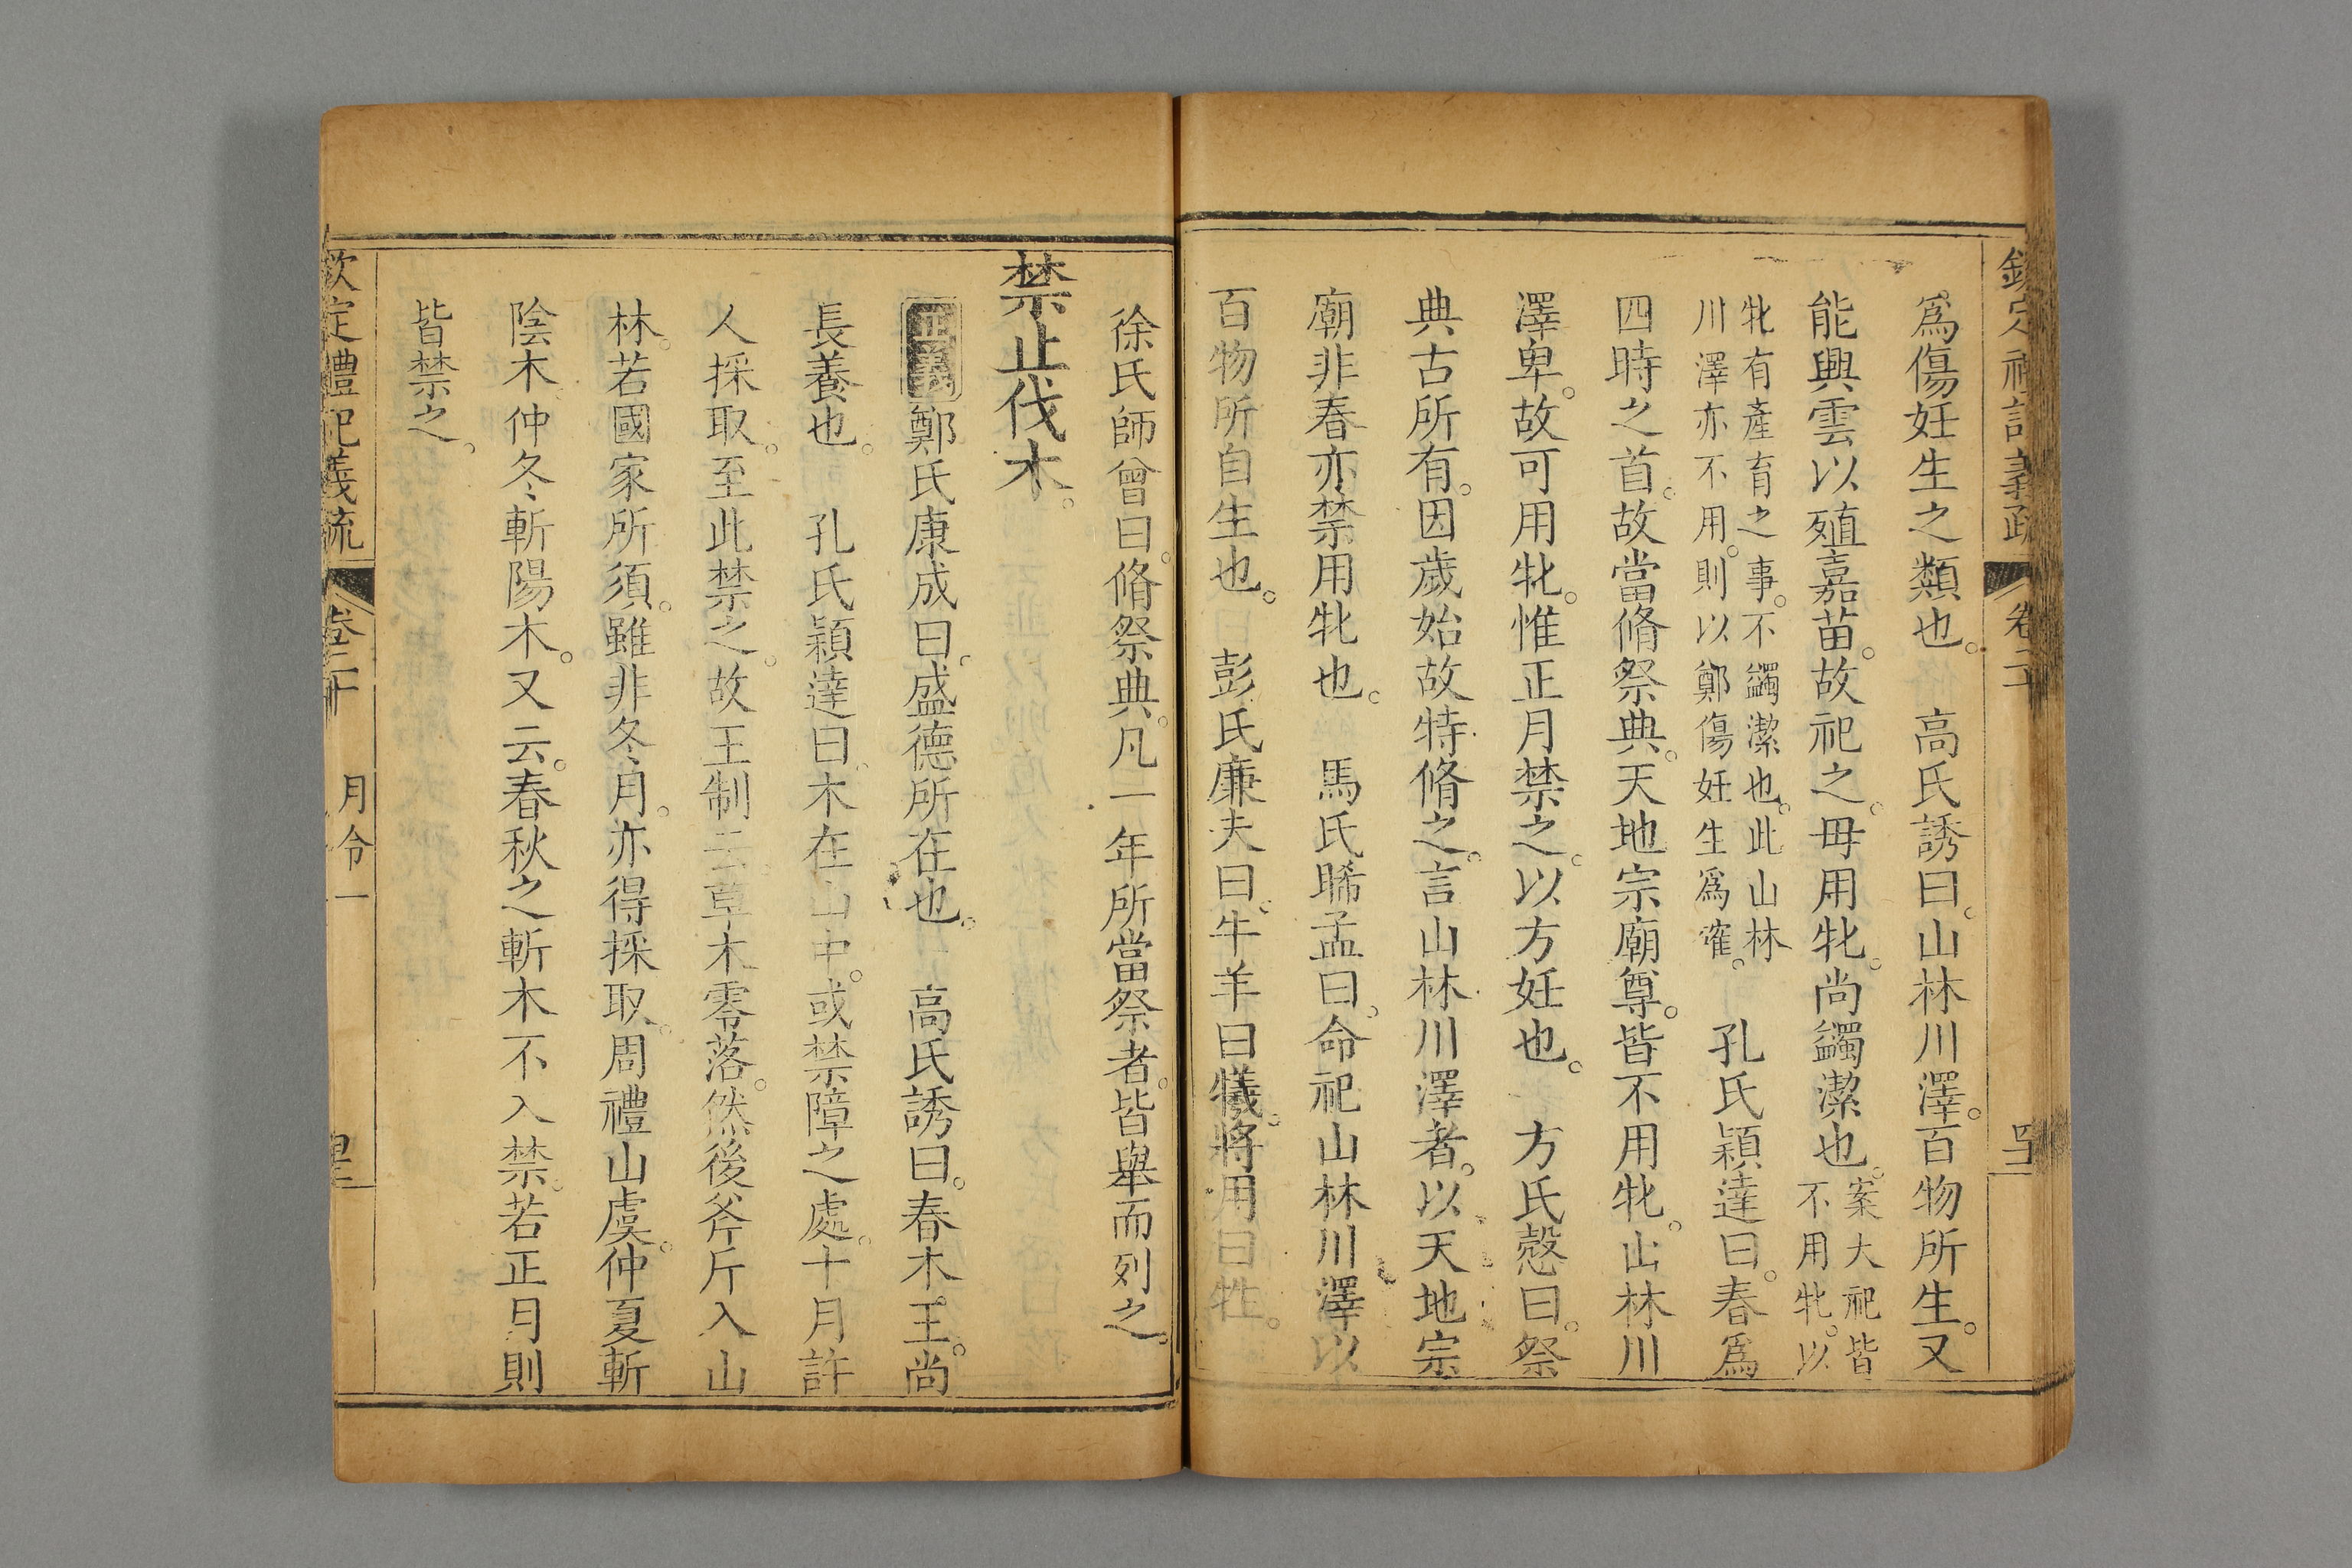 欽定禮記義疏 卷二十
爲傷妊生之類也。 高氏誘曰。山林川澤。百物所生。又
能興雲以殖嘉苗。故祀之。毋用牝。尚蠲潔也。案大祀皆
不用牝。以
牝有產育之事。不蠲潔也。此山林
川澤亦不用。則以鄭傷妊生爲確。 孔氏穎達曰。春爲
四時之首。故當脩祭典。天地宗廟尊。皆不用牝。山林川
澤卑。故可用牝。惟正月禁之。以方妊也。 方氏慤曰。祭
典古所有。因歲始故特脩之。言山林川澤者。以天地宗
廟非春亦禁用牝也。 馬氏晞孟曰。命祀山林川澤以
百物所自生也。 彭氏廉夫曰。牛羊曰犧。將用曰牲。
徐氏師曾曰。脩祭典。凡一年所當祭者。皆舉而列之。
禁止伐木。
正義 鄭氏康成曰。盛德所在也。 高氏誘曰。春木王。尚
長養也。 孔氏穎達曰。木在山中。或禁障之處。十月許
人採取。至此禁之。故王制云。草木零落。然後斧斤入山
林。若國家所須。雖非冬月。亦得採取。周禮山虞。仲夏斬
陰木。仲冬斬陽木。又云。春秋之斬木不入禁。若正月則
皆禁之。
欽定禮記義疏 卷二十 月令一